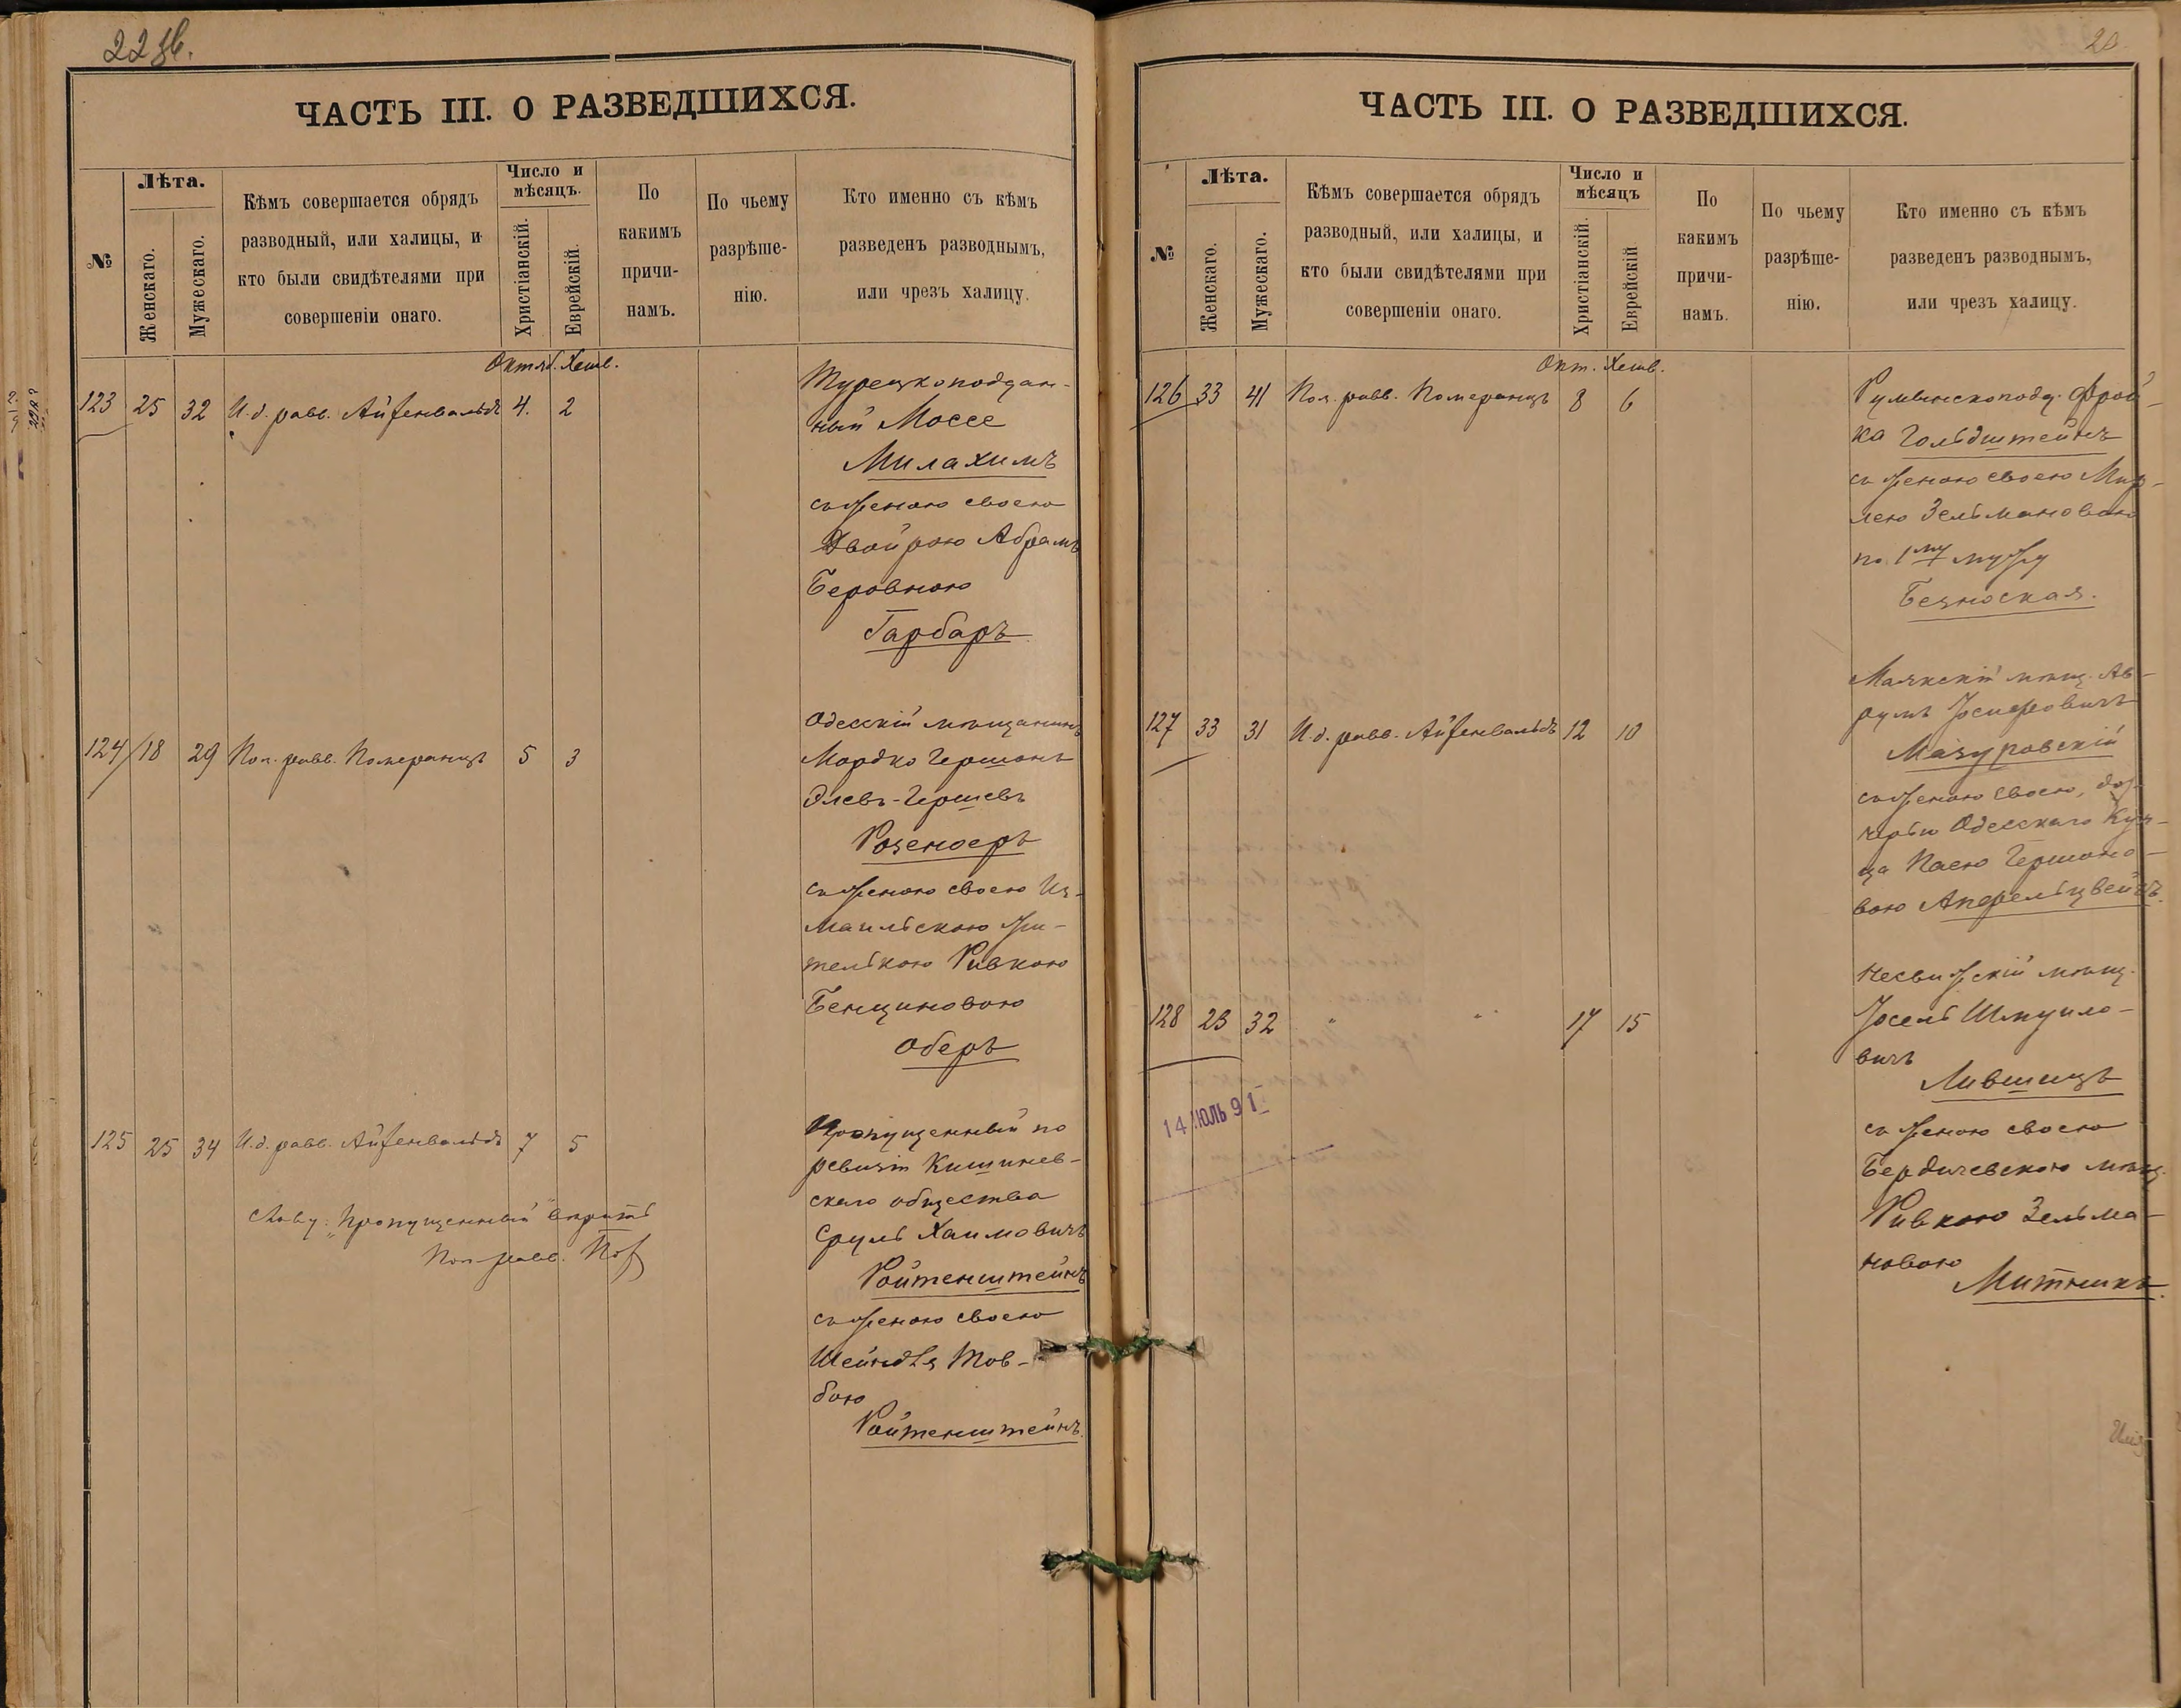 22 зв.
ЧАСТЬ III. О РАЗВЕДШИХСЯ.
№
Лѣта.
Женскаго.
Мужескаго.
Кѣмъ совершается обрядъ
разводный, или халицы, и
кто были свидѣтелями при
совершеніи онаго.
Число и
мѣсяцъ.
Христіанскій.
Еврейскій.
По
какимъ
причи-
намъ.
По чьему
разрѣше-
нію.
Кто именно съ кѣмъ
разведенъ разводнымъ,
или чрезъ халицу.
Октяб. Хешв.
123 25 32 И.д. равв. Айзенвальдъ 4. 2
Турецкоподдан-
ный Моссе
Милахимъ
съ женою своею
Двойрою Абрамъ
Беровною
Гарбаръ
124 18 29 Пом. равв. Померанцъ 5 3
Одесскій мѣщанинъ
Мордко Гершонъ
Элевъ-Гершевъ
Розеноеръ
съ женою своею Из-
маильскою жи-
телькою Ривкою
Бенциновою
Оберъ
125 25 34 И.д. равв. Айзенвальдъ 7 5
Пропущенный по
ревизіи Кишинев-
скаго общества
Сруль Хаимовичъ
Ройтенштейнъ
съ женою своею
Шейндля Тов-
бою
Ройтенштейнъ.
Слову: „Пропущенный" вѣрить
Пом. равв.
ЧАСТЬ III. О РАЗВЕДШИХСЯ.
№
Лѣта.
Женскаго.
Мужескаго.
Кѣмъ совершается обрядъ
разводный, или халицы, и
кто были свидѣтелями при
совершеніи онаго.
Число и
мѣсяцъ
Христіанскій.
Еврейскій
По
какимъ
причи-
намъ.
По чьему
разрѣше-
нію.
Кто именно съ кѣмъ
разведенъ разводнымъ,
или чрезъ халицу.
Окт. Хешв.
126 33 41 Пом. равв. Померанцъ 8 6
Румынскоподд. Фрой-
ка Гольдштейнъ
съ женою своею Мир-
лею Зельмановою
по 1му мужу
Безноская.
127 33 31 И.д. равв. Айзенвальдъ 12 10
Маякскій мѣщ. Ав-
румъ Іосифовичъ
Мазуровскій
съ женою своею, до-
черью Одесскаго Куп-
ца Паею Гершоно-
вою Апфельцвейгъ.
128 23 32 " " 17 15
Несвижскій мѣщ.
Іосель Шмуило-
вичъ
Лившицъ
съ женою своею
Бердичевскою мѣщ.
Ривкою Зельма-
новою
Митникъ.
14 ІЮЛЬ 91